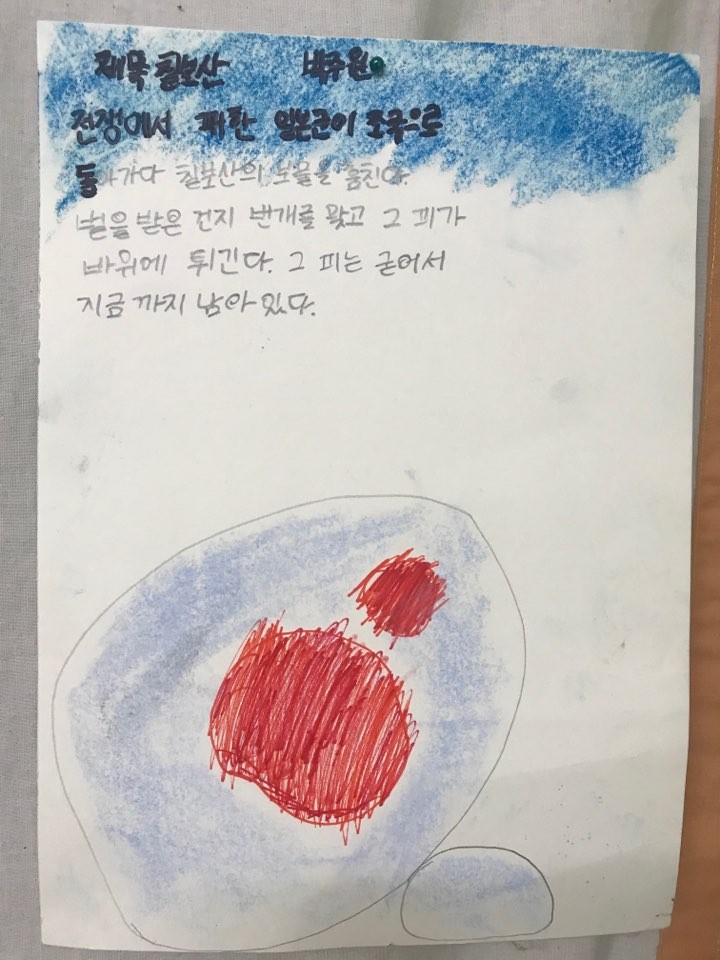 제목 칠보산 박주원
전쟁에서 패한 일본군이 조국으로
돌아가다 칠보산의 보물을 훔친다.
벌을 받은 건지 번개를 맞고 그 피가
바위에 튀긴다. 그 피는 굳어서
지금 까지 남아 있다.